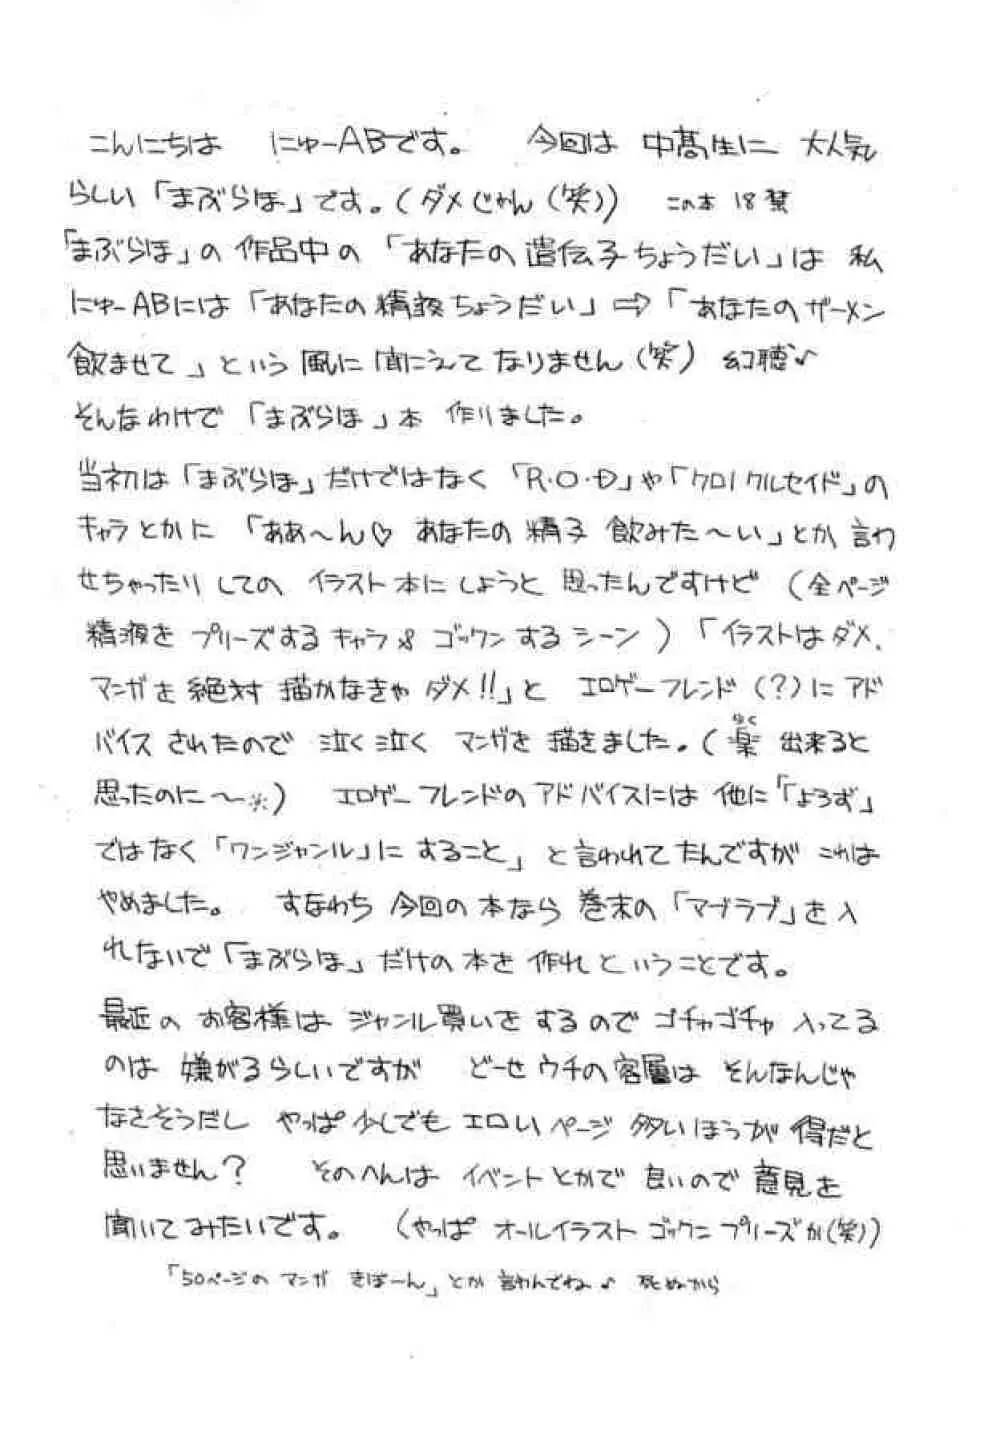 こんにちは にゅーABです。 今回は 中高生に 大人気
らしい「まぶらほ」です。(ダメじゃん(笑)) この本 18禁
「まぶらほ」の 作品中の 「あなたの遺伝子ちょうだい」は 私
にゅーABには「あなたの精液ちょうだい」⇨「あなたのザーメン
飲ませて」という 風に 聞こえて なりません(笑) 幻聴♪
そんなわけで 「まぶらほ」本 作りました。
当初は「まぶらほ」だけではなく 「R・O・D」や「クロノクルセイド」の
キャラとかに 「ああ〜ん♡ あなたの 精子 飲みた〜い」とか 言わ
せちゃったり しての イラスト本に しようと 思ったんですけど (全ページ
精液を プリーズする キャラ& ゴックン する シーン)「イラストは ダメ、
マンガを 絶対 描かなきゃ ダメ!!」と エロゲーフレンド(?)に アド
バイス されたので 泣く泣く マンガを 描きました。(楽 出来ると
らく
思ったのに〜※) エロゲーフレンドの アドバイスには 他に「「よろず」
ではなく「ワンジャンル」に すること」と言われてたんですが これは
やめました。 すなわち 今回の 本なら 巻末の 「マブラブ」を 入
れないで「まぶらほ」だけの 本を 作れ と いうことです。
最近の お客様は ジャンル買いを するので ゴチャゴチャ 入ってる
のは 嫌がるらしいですが どーせウチの客層は そんなんじゃ
なさそうだし やっぱ 少しでも エロいページ 多いほうが 得だと
思いません? そのへんは イベントとかで 良いので 意見を
聞いてみたいです。 (やっぱ オールイラスト ゴックン プリーズか(笑))
「50ページの マンガ きぼーん」とか 言わんでね♪ 死ぬから